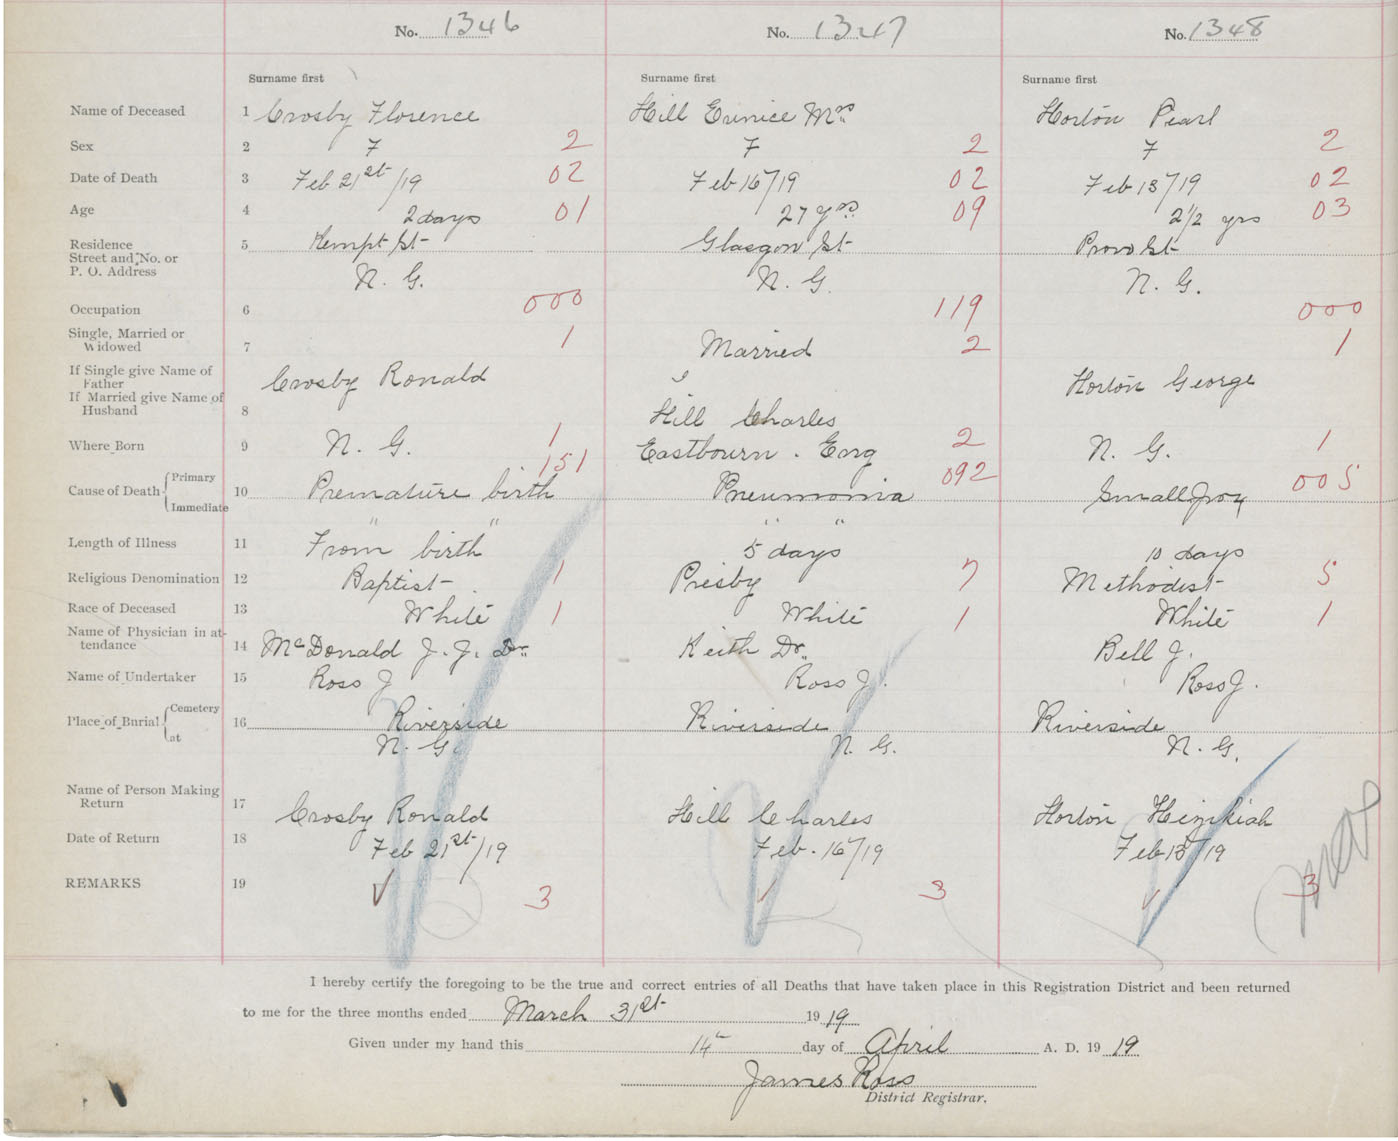 No. 1346 No. 1347 No. 1348
Surname first Surname first Surname first
Name of Deceased 1 Crosby Florence Hill Eunice Mrs. Horton Pearl
Sex 2 F 2 F 2 F 2
Date of Death 3 Feb 21st/19 02 Feb 16/19 02 Feb 13/19 02
Age 4 2 days 01 27 yrs. 09 2 1/2 yrs 03
Residence 5 Kempt St Glasgow St Provo St
Street and No. or
P. O. Address N. G. N. G. N. G.
Occupation 6 000 119 000
Single, Married or
Widowed 7 1 Married 2 1
If Single give Name of
Father Crosby Ronald Horton George
If Married give Name of
Husband 8 Hill Charles
Where Born 9 N. G. 1 Eastbourn. Eng 2 N. G. 1
Cause of Death Primary 10 Premature birth 151 Pneumonia 092 Smallpox 005
Immediate " " " "
Length of Illness 11 From birth 5 days 10 days
Religious Denomination 12 Baptist 1 Presby 7 Methodist 5
Race of Deceased 13 White 1 White 1 White 1
Name of Physician in at-
tendance 14 McDonald J. J. Dr. Keith Dr. Bell J.
Name of Undertaker 15 Ross J Ross J. Ross J.
Place of Burial Cemetery 16 Riverside Riverside Riverside
at N. G. N. G. N. G.
Name of Person Making
Return 17 Crosby Ronald Hill Charles Horton
Date of Return 18 Feb 21st/19 Feb. 16/19 Feb 13/19
REMARKS 19 3 3 3
I hereby certify the foregoing to be the true and correct entries of all Deaths that have taken place in this Registration District and been returned
to me for the three months ended March 31st 1919
Given under my hand this 14 day of April A. D. 1919
James Ross
District Registrar.